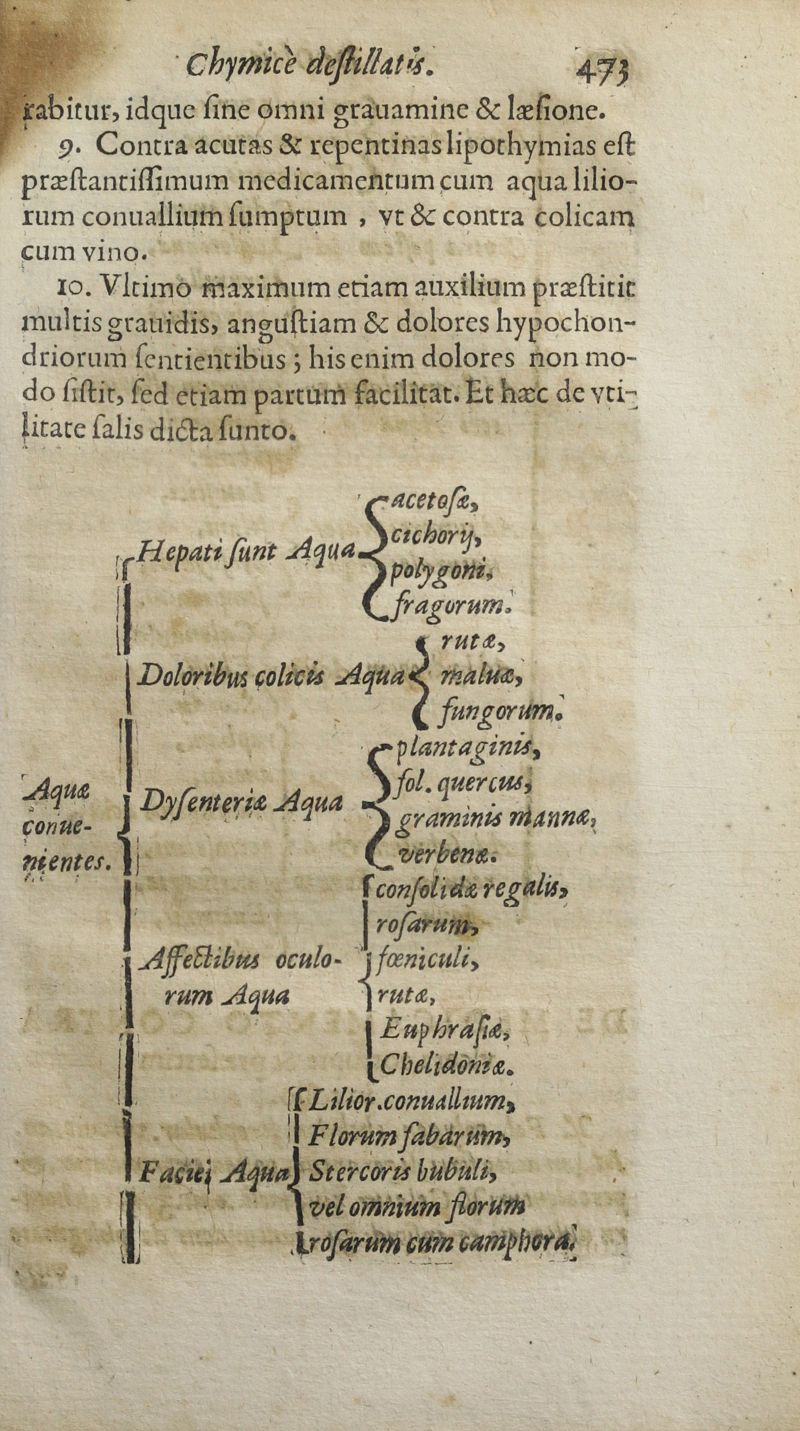 Chymicè destillatis. 473
rabitur, idque sine omni grauamine & læsione.
9. Contra acutas & repentinas lipothymias est
præstantissimum medicamentum cum aqua lilio-
rum conuallium sumptum , vt & contra colicam
cum vino.
10. Vltimò maximum etiam auxilium præstitit
multis grauidis, angustiam & dolores hypochon-
driorum sentientibus ; his enim dolores non mo-
do sistit, sed etiam partum facilitat. Et hæc de vti-
litate salis dicta sunto.
acetosæ,
Hepati sunt Aqua cichorij,
polygoni,
fragorum.
rutæ,
Doloribus colicis Aqua maluæ,
fungorum.
plantaginis,
Dysenteriæ Aqua fol. quercus,
graminis mannæ,
verbenæ.
Aquæ
conue-
nientes.
consolidæ regalis,
rosarum,
Affectibus oculo- fœniculi,
rum Aqua rutæ,
Euphrasiæ,
Chelidoniæ.
Lilior.conuallium,
Florum fabarum,
Faciei Aqua Stercoris bubuli,
vel omnium florum
rosarum cum camphora.